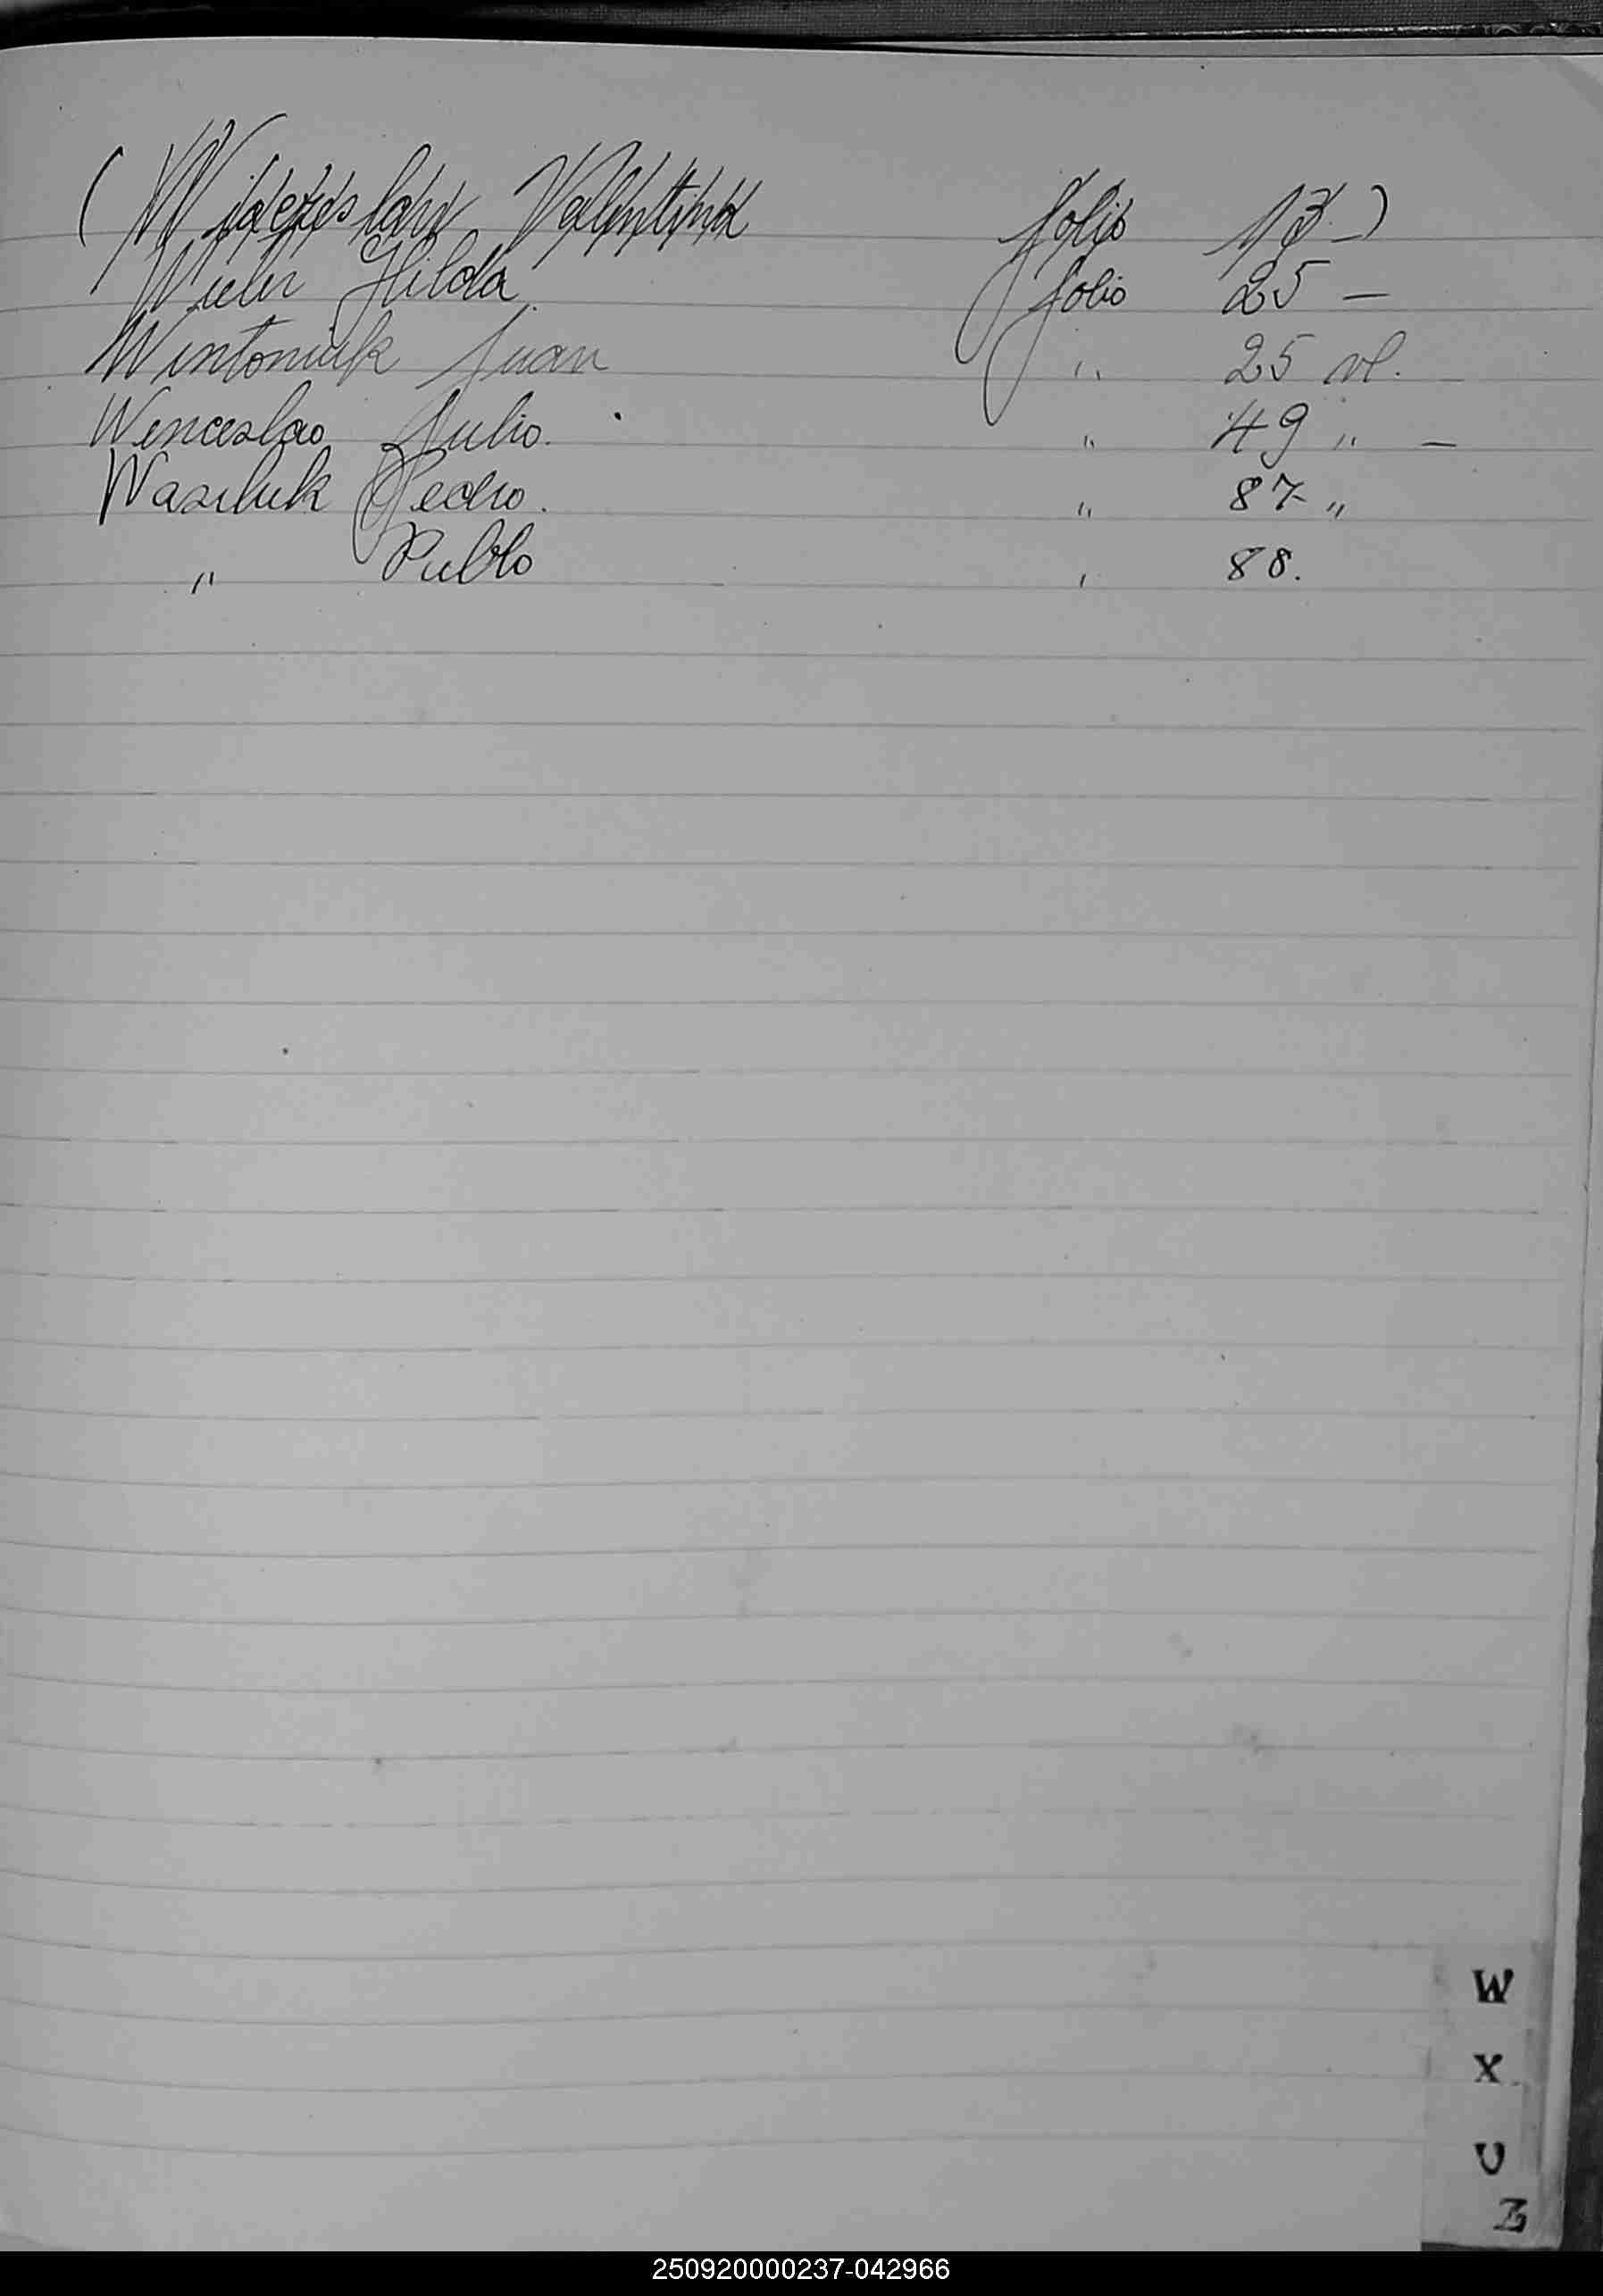 folio 13 -)
Hilda folio 25 -
Wintoniuk Juan " 25 vt.
Wenceslao Julio. " 49 " -
Wasiluk Pedro. " 87 "
" Pablo " 88.
W
X
U
Z
250920000237-042966